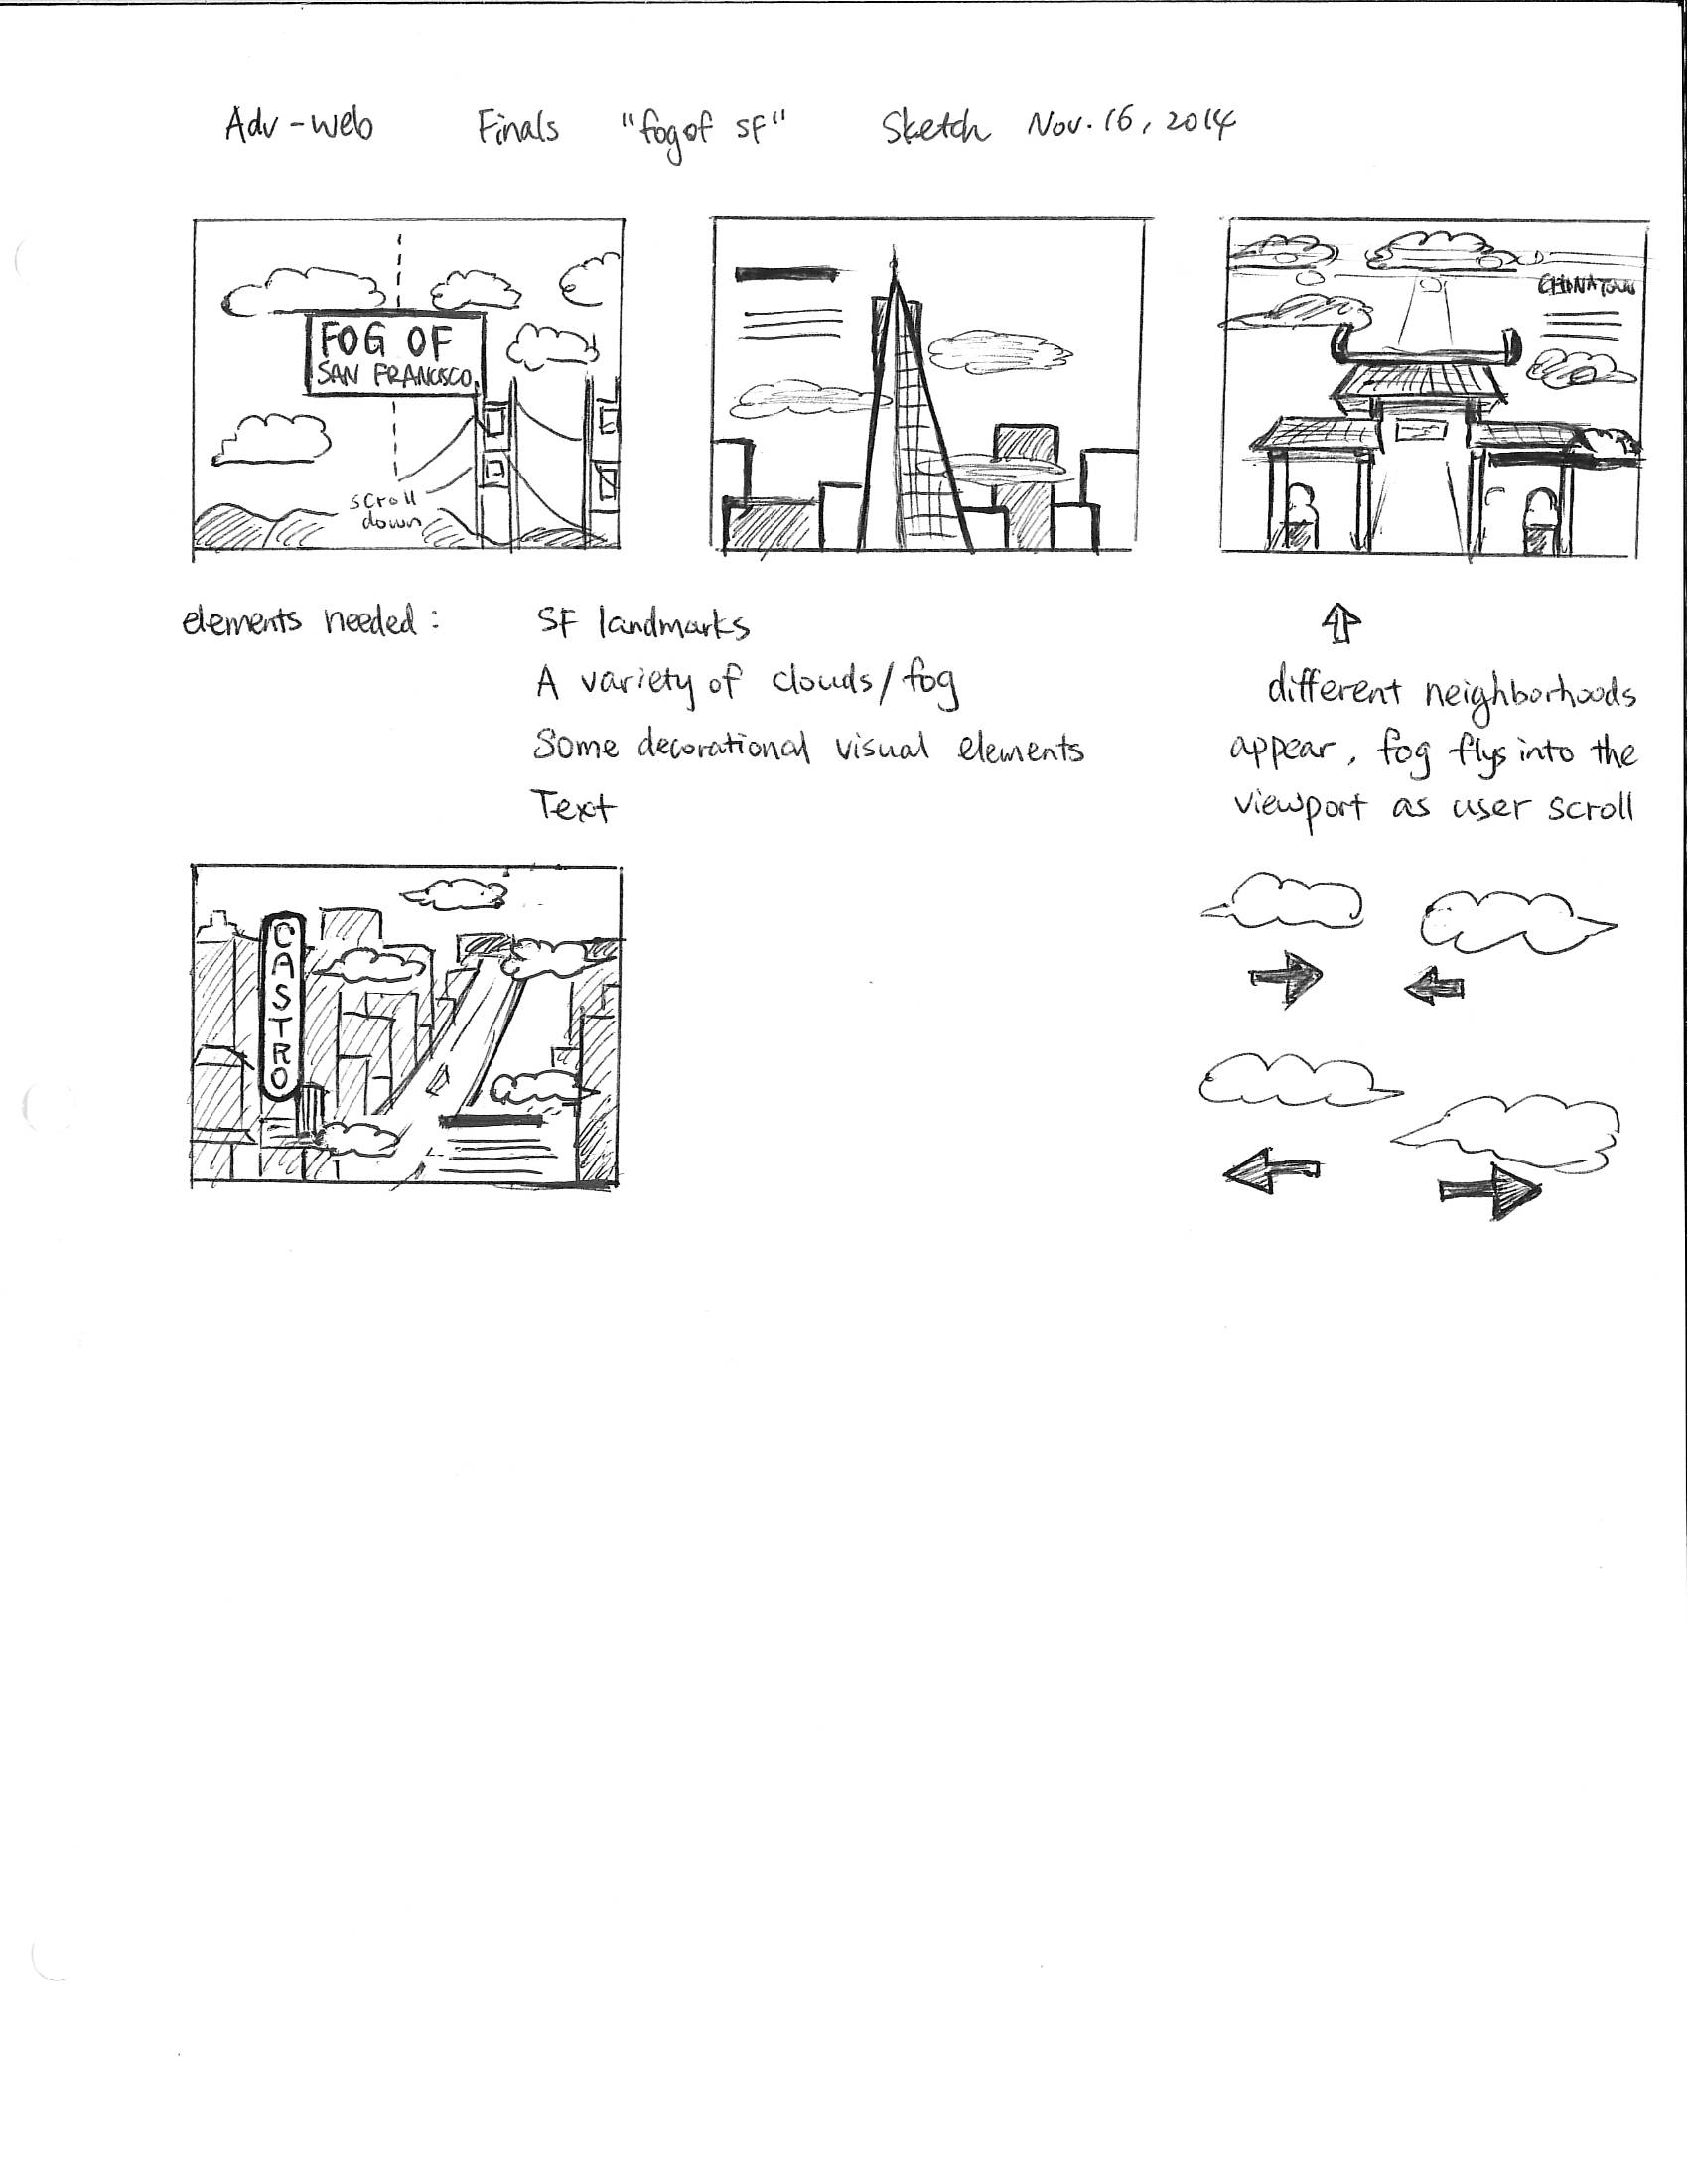 Adv-web Finals "fog of SF" Sketch Nov. 16, 2014
FOG OF
SAN FRANCISCO
scroll
down
CHINATOWN
elements needed: SF landmarks
A variety of clouds/fog
Some decorational visual elements
Text
different neighborhoods
appear, fog flys into the
viewport as user scroll
CASTRO